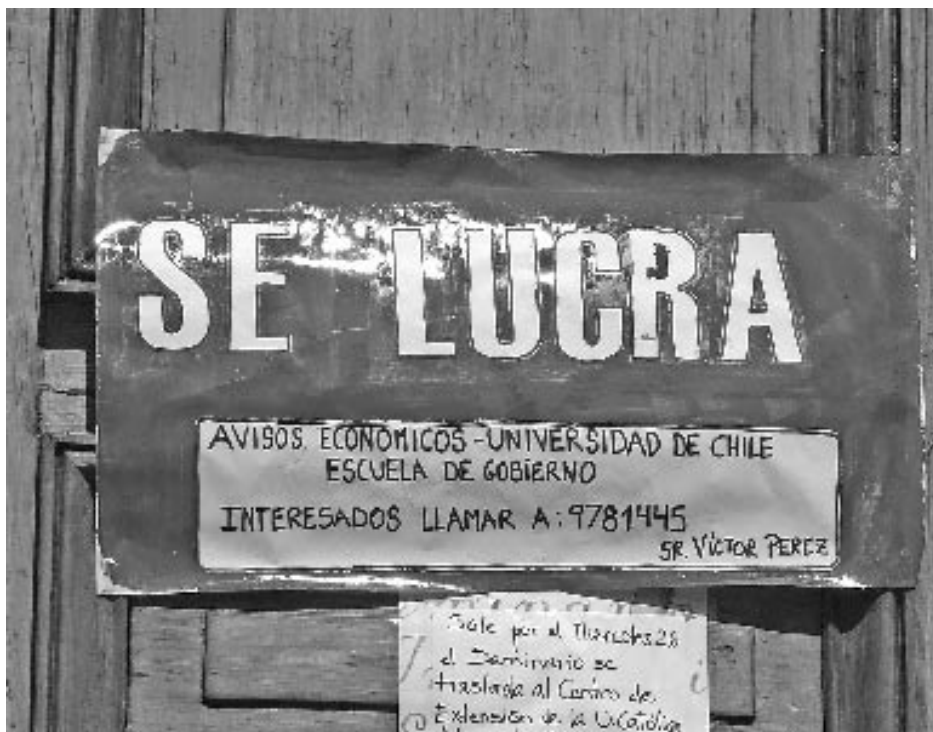 SE LUCRA
AVISOS ECONOMICOS - UNIVERSIDAD DE CHILE
ESCUELA DE GOBIERNO
INTERESADOS LLAMAR A: 9781445
SR. VÍCTOR PEREZ
Sólo por el Miércoles 28
el Seminario se
traslada al Centro de
Extensión de la U. Católica